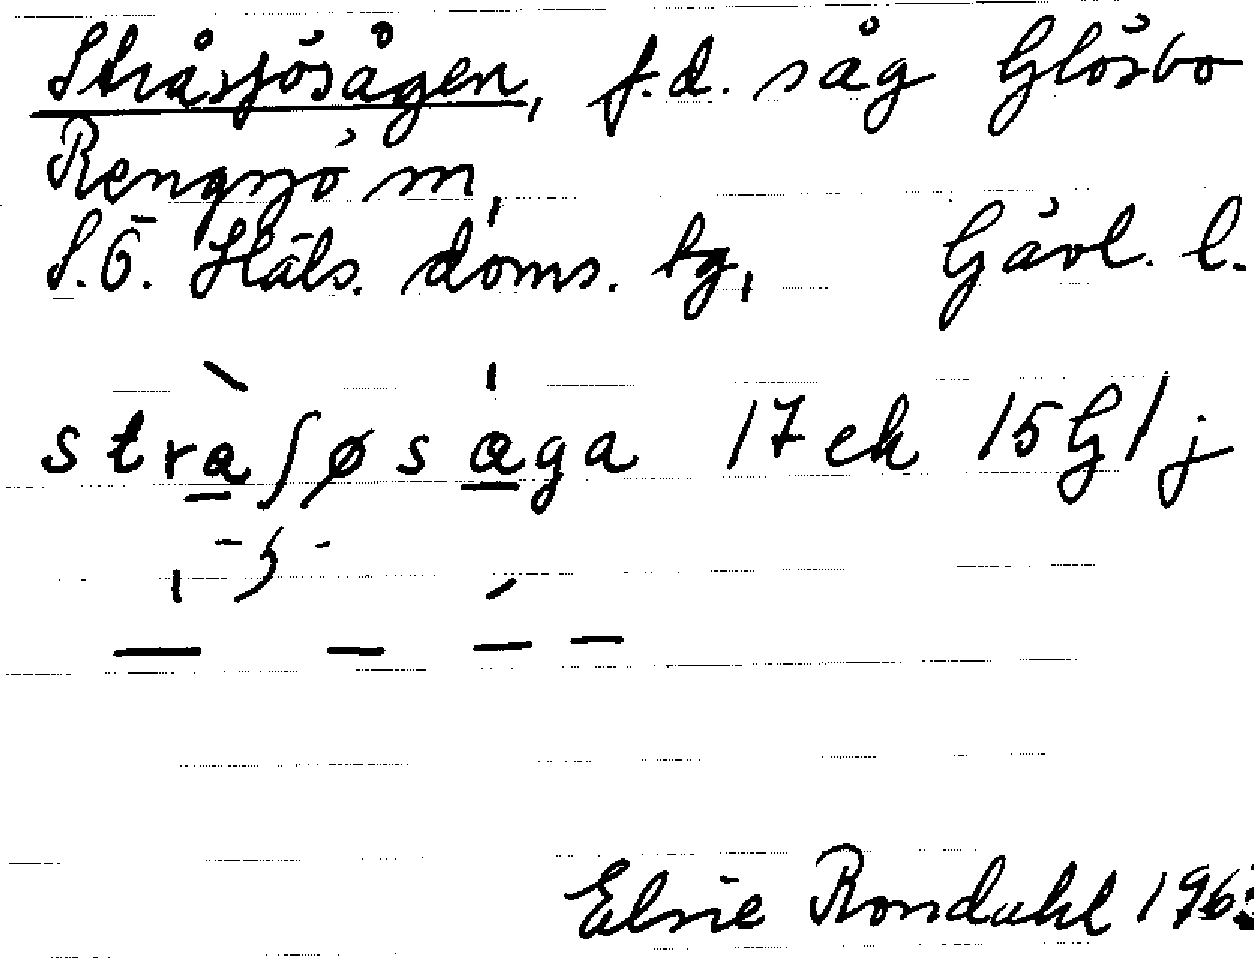 Stråsjösågen, f.d. såg Glösbo
Rengsjö m,
S.Ö. Häls. doms. tg, Gävl. l.
straʃøsaga 17ek 15G1j
Elsie Rondahl